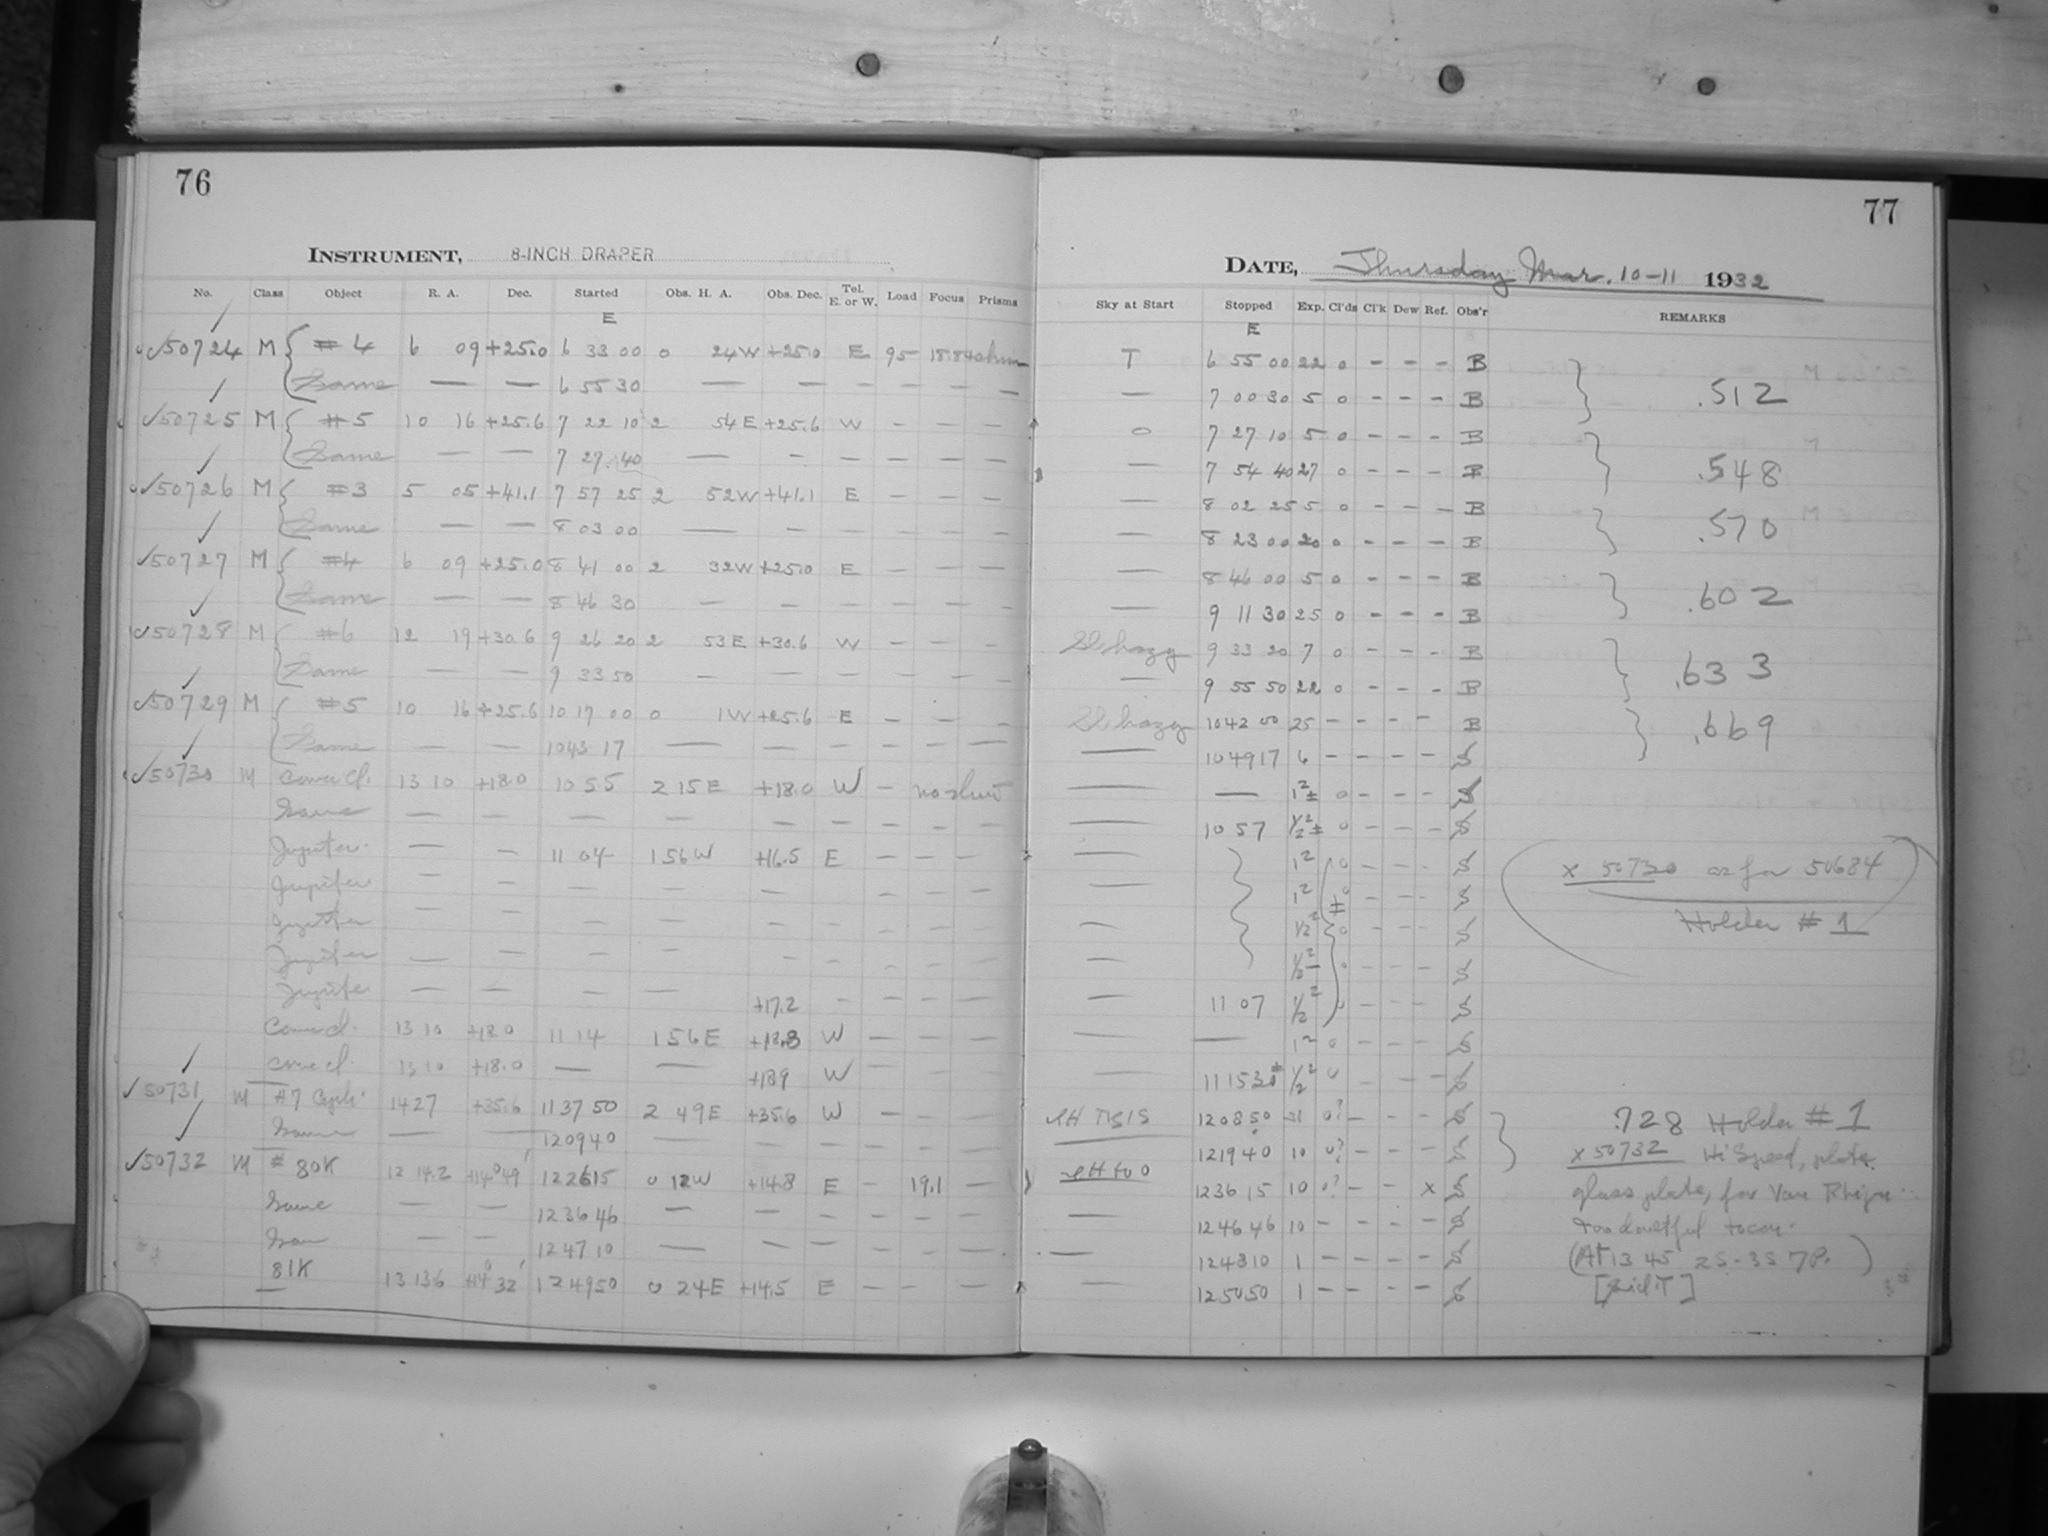 76
INSTRUMENT, 8-INCH DRAPER
No. Class Object R. A. Dec. Started Obs. H. A. Obs. Dec. Tel. E. or W. Load Focus Prisms
E
√50724 M { #4 6 09 +25.0 6 33 00 0 24W +25.0 E 95
Same — — 6 55 30 — — — — — —
√50725 M { #5 10 16 +25.6 7 22 10 2 54E +25.6 W — — —
Same — — 7 27 40 — — — — — —
√50726 M { #3 5 05 +41.1 7 57 25 2 52W +41.1 E — — —
Same — — 8 03 00 — — — — — —
√50727 M { #4 6 09 +25.0 8 41 00 2 32W +25.0 E — — —
Same — — 8 46 30 — — — — — —
√50728 M { #6 12 19 +30.6 9 26 20 2 53E +30.6 W — — —
Same — — 9 33 50 — — — — — —
√50729 M { #5 10 16 +25.6 10 17 00 0 1W +25.6 E — — —
Same — — 10 43 17 — — — — — —
√50730 M Coma Cl. 13 10 +18.0 10 55 2 15E +18.0 W — no
Same — — — — — — — — —
Jupiter — — 11 04 1 56W +16.5 E — — —
Jupiter — — — — — — — — —
Jupiter — — — — — — — — —
Jupiter — — — — — — — — —
Jupiter — — — — +17.2 — — — —
Coma cl. 13 10 +18.0 11 14 1 56E W — — —
Coma cl. 13 10 +18.0 — — W
√50731 M #7 14 27 +35.6 11 37 50 2 49E +35.6 W — — —
Same — — 12 09 40 — — — — — —
√50732 M # 80K 12 14.2 +14°49' 12 26 15 0 12W +14.8 E — 19.1 —
Same — — 12 36 46 — — — — — —
Same — — 12 47 10 — — — — — —
81K 13 13.6 +14°32' 12 49 50 0 24E +14.5 E — — —
77
DATE, Thursday Mar. 10-11 1932
Sky at Start Stopped Exp. Cl'ds Cl'k Dew Ref. Obs'r REMARKS
E
T 6 55 00 22 0 — — — B
— 7 00 30 5 0 — — — B } .512
0 7 27 10 5 0 — — — B
— 7 54 40 27 0 — — — B } .548
— 8 02 25 5 0 — — — B
— 8 23 00 20 0 — — — B } .570
— 8 46 00 5 0 — — — B
— 9 11 30 25 0 — — — B } .602
Sl. hazy 9 33 20 7 0 — — — B
— 9 55 50 22 0 — — — B } .633
Sl. hazy 10 42 00 25 — — — — B
— 10 49 17 6 — — — — S } .669
— — 1 ± 0 — — — S
— 10 57 1/2 ± 0 — — — S
— 1 0 — — — S x 50730 as for 50684
— 1 0 — — — S
— 1/2 0 — — — S Holder # 1
— 1/2 0 — — — S
— 11 07 1/2 0 — — — S
— — 1 0 — — — S
— 11 15 30 ± 1/2 0 — — — S
12 08 50 31 0? — — — S .728 Holder # 1
12 19 40 10 0? — — — S x 50732 Hi Speed, plate
12 36 15 10 0? — — x S glass plate, for Van Rhijn
— 12 46 46 10 — — — — S too doubtful
— 12 48 10 1 — — — — S (At 13 45 2S-3S 7P.)
— 12 50 50 1 — — — — S